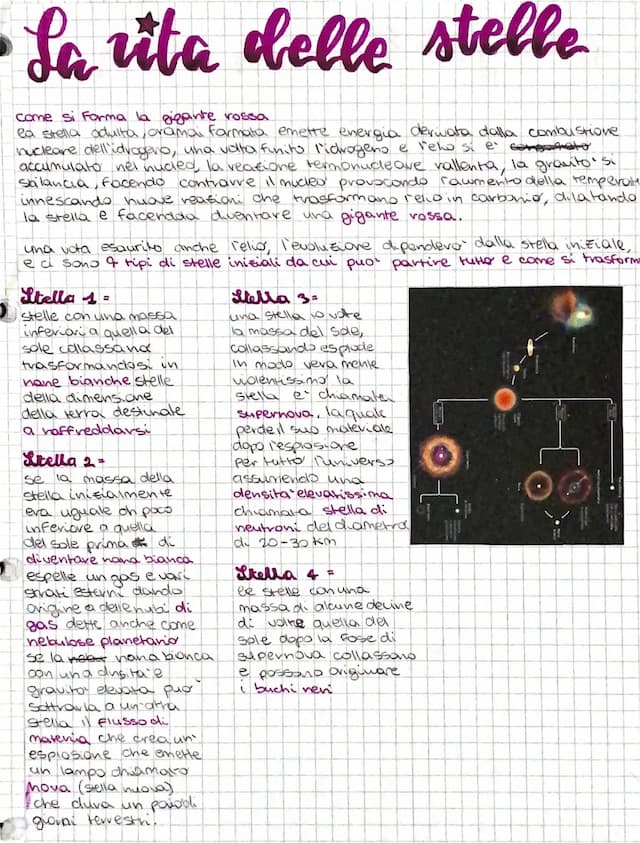 La vita delle stelle
come si forma la gigante rossa
la stella adulta, oramai formata emette energia derivata dalla combustione
nucleare dell'idrogeno, una volta finito l'idrogeno e l'elio si e'
accumulato nel nucleo, la reazione termonucleare rallenta, la gravita' si
sbilancia, facendo contrarre il nucleo provocando l'aumento della temperat
innescando nuove reazioni che trasformano l'elio in carbonio, dilatando
la stella e facendola diventare una gigante rossa.
una volta esaurito anche l'elio, l'evoluzione dipendera' dalla stella iniziale,
e ci sono 4 tipi di stelle iniziali da cui puo' partire tutto e come si trasform
Stella 1 =
stelle con una massa
inferiori a quella del
sole collassano
trasformandosi in
nane bianche stelle
della dimensione
della terra destinate
a raffreddarsi
Stella 2 =
se la massa della
stella inizialmente
era uguale o poco
inferiore a quella
del sole prima di
diventare nana bianca
espelle un gas e vari
strati esterni dando
origine a delle nubi di
gas dette anche come
nebulose planetario
se la nana bianca
con una densita' e
gravita' elevata puo'
sottrarla a un'altra
stella il flusso di
materia che crea un'
esplosione che emette
un lampo chiamato
nova (stella nuova)
che dura un paio di
giorni terrestri.
Stella 3 =
una stella 10 volte
la massa del sole,
collassando esplode
in modo veramente
violentissimo la
stella e' chiamata
supernova, la quale
perde il suo materiale
dopo l'esplosione
per tutto l'universo
assumendo una
densita' elevatissima
chiamata stella di
neutroni del diametro
di 20-30 km
Stella 4 =
le stelle con una
massa di alcune decine
di volte quella del
sole dopo la fase di
supernova collassano
e possono originare
i buchi neri